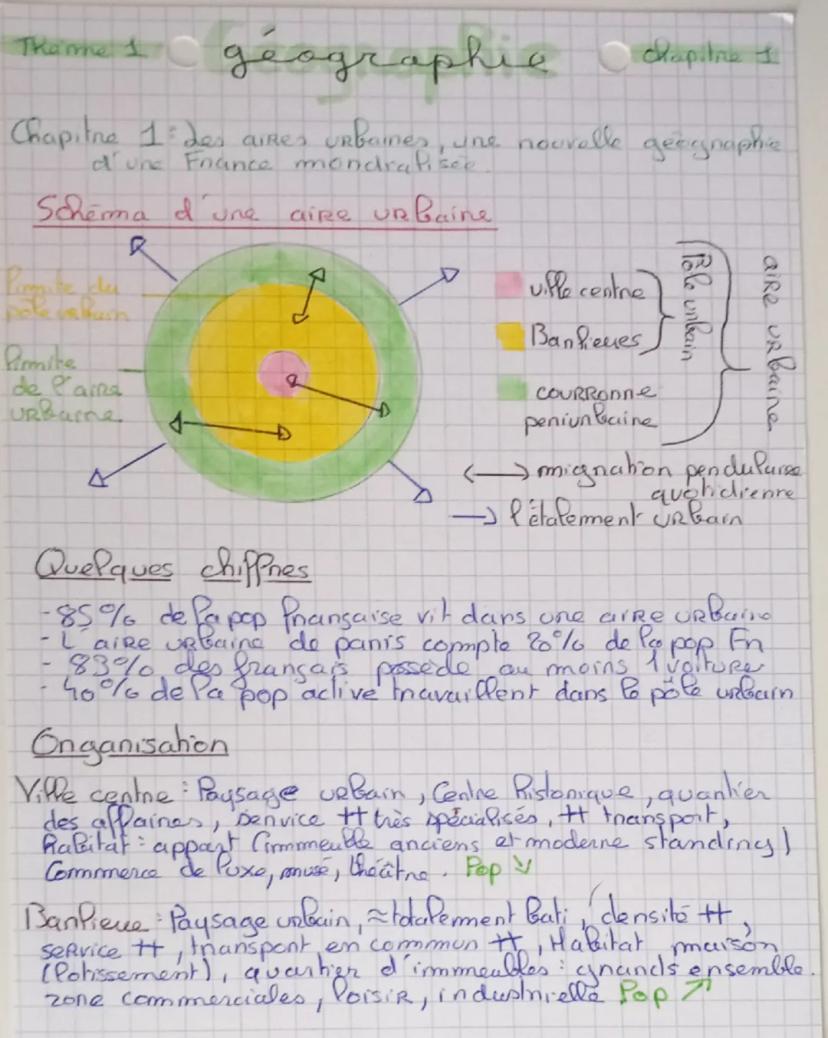 Thème 1 géographie chapitre 1
Chapitre 1 : des aires urbaines, une nouvelle géographie
d'une France mondialisée.
Schéma d'une aire urbaine
limite du
pôle urbain
limite
de l'aire
urbaine
ville centre
Banlieues
Pôle urbain
couronne
periurbaine
aire urbaine
<-> migration pendulaire
quotidienne
-> l'étalement urbain
Quelques chiffres
- 85% de la pop française vit dans une aire urbaine
- L'aire urbaine de paris compte 20% de la pop Fr
- 83% des français possède au moins 1 voiture
- 40% de la pop active travaillent dans le pôle urbain
Organisation
Ville centre : Paysage urbain, Centre historique, quartier
des affaires, service ++ très spécialisés, ++ transport,
habitat : appart (immeuble anciens et moderne standing)
Commerce de luxe, musé, théâtre. Pop ↘
Banlieue : Paysage urbain, ≈ totalement bati, densité ++,
service ++, transport en commun ++, Habitat maison
(lotissement), quartier d'immeubles : grands ensemble.
zone commerciales, loisir, industrielle Pop ↗